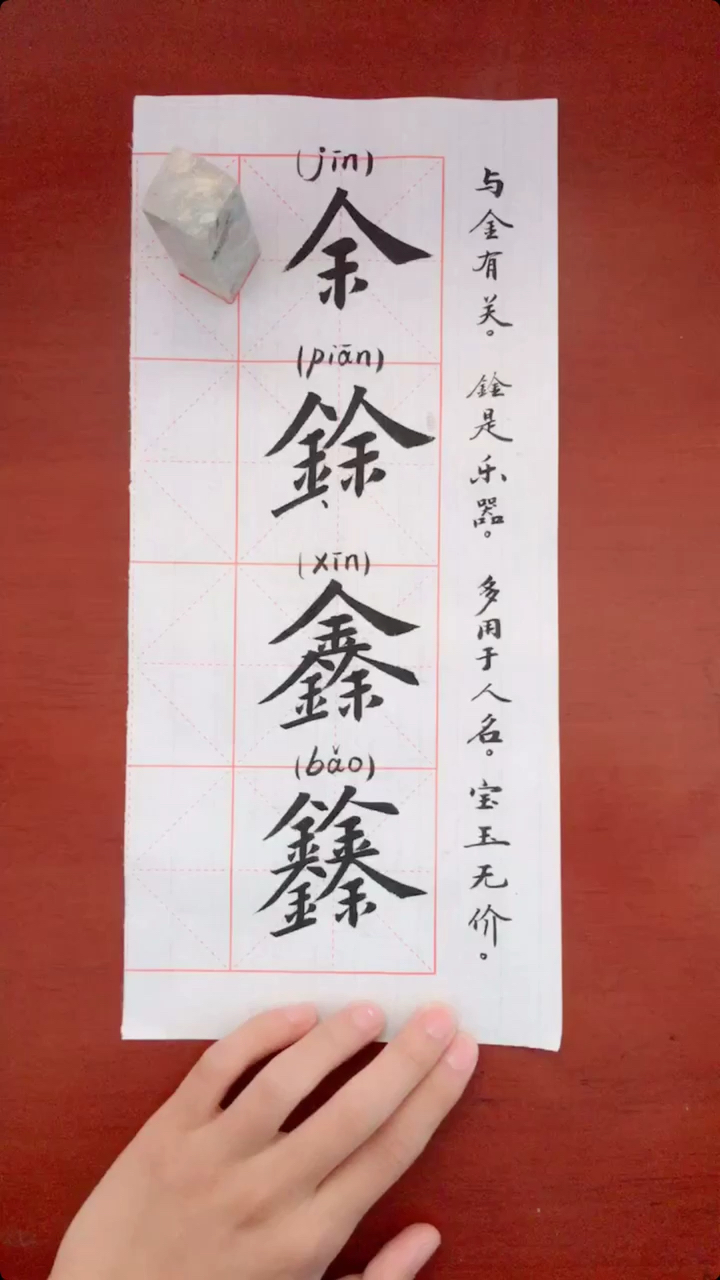 (jīn)
金
(piān)
鍂
(xīn)
鑫
(bǎo)
𨰻
与金有关。鍂是乐器。多用于人名。宝玉无价。